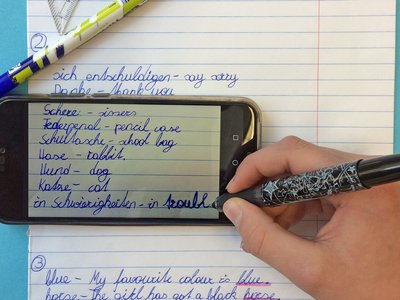 2
sich entschuldigen - say sorry
Danke - thank you
Schere - sissers
Federpenal - pencil case
Schultasche - school bag
Hase - rabbit
Hund - dog
Katze - cat
in Schwierigkeiten - in troubl
3
blue - My favourite colour is blue.
horse - The girl has got a black horse.